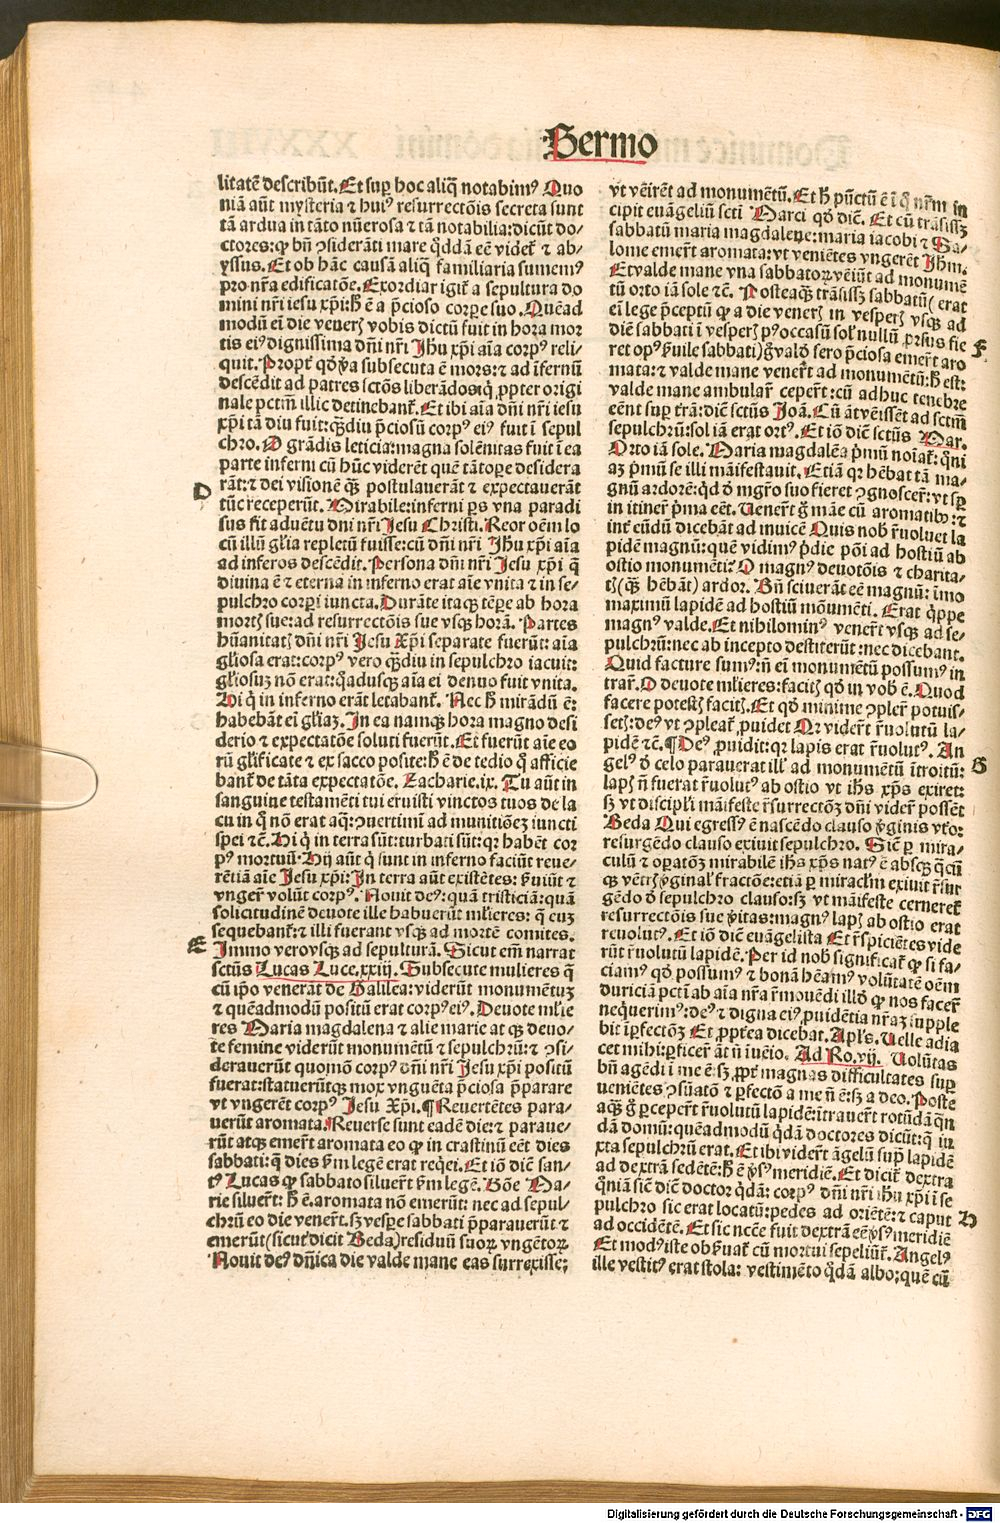 Sermo
litatē describūt. Et suꝑ hoc aliq̄ notabimꝰ Quo
niā aūt mysteria ⁊ huiꝰ resurrectōis secreta sunt
tā ardua in tāto nūerosa ⁊ tā notabilia: dicūt do⸗
ctores: ꝙ bn̄ ꝯsiderāti mare q̄ddā eē videt᷑ ⁊ ab⸗
yssus. Et ob hāc causā aliq̄ familiaria sumemꝰ
pro nr̄a edificatōe. Exordiar igit᷑ a sepultura do
mini nr̄i iesu xp̄i: h̄ ē a p̄cioso corꝑe suo. Quēad
modū eī die venerꝭ vobis dictū fuit in hora mor
tis eiꝰ dignissima dn̄i nr̄i Jhū xp̄i aīa corpꝰ reli⸗
quit. Propt̄ qd̄ v̄a subsecuta ē mors: ⁊ ad īfernū
descēdit ad patres sctōs liberādos q̄ ꝓpter origi
nale pctm̄ illic detinebant᷑. Et ibi aīa dn̄i nr̄i iesu
xp̄i tā diu fuit: q̄ȝdiu p̄ciosū corpꝰ eiꝰ fuit ī sepul
chro. O grādis leticia: magna solēnitas fuit ī ea
parte inferni cū hūc viderēt quē tātoꝑe desidera
D
rāt: ⁊ dei visionē q̄ȝ postulauerāt ⁊ expectauerāt
tūc receperūt. Mirabile: inferni ꝑs vna paradi
sus fit aduētu dn̄i nr̄i Jesu Christi. Reor oēm lo
cū illū gl̄ia repletū fuisse: cū dn̄i nr̄i Jhū xp̄i aīa
ad inferos descēdit. Persona dn̄i nr̄i Jesu xp̄i q̄
diuina ē ⁊ eterna in inferno erat aīe vnita ⁊ in se⸗
pulchro corꝑi iuncta. Durāte itaqȝ tēꝑe ab hora
mortꝭ sue: ad resurrectōis sue vsqȝ horā. Partes
hūanitatꝭ dn̄i nr̄i Jesu Xp̄i separate fuerūt: aīa
gl̄iosa erat: corpꝰ vero q̄ȝdiu in sepulchro iacuit:
gl̄iosuȝ nō erat: q̄adusqȝ aīa ei denuo fuit vnita.
Hi q̄ in inferno erāt letabant᷑. Nec h̄ mirādū ē:
habebāt eī gl̄iaȝ. In ea namqȝ hora magno desi
derio ⁊ expectatōe soluti fuerūt. Et fuerūt aīe eo
rū gl̄ificate ⁊ ex sacco posite: h̄ ē de tedio q̄ afficie
bant᷑ de tāta expectatōe. Zacharie.ix. Tu aūt in
sanguine testamēti tui eruisti vinctos tuos de la
cu in q̄ nō erat aq̄: ꝯuertimī ad munitiōeȝ iuncti
spei ⁊c̄. Hi q̄ in terra sūt: turbati sūt: qꝛ habēt cor
pꝰ mortuū. Hij aūt q̄ sunt in inferno faciūt reue⸗
rētiā aīe Jesu xp̄i: In terra aūt existētes: v̄niūt ⁊
vnger̄ volūt corpꝰ. Nouit deꝰ: quā tristiciā: quā
solicitudinē deuote ille habuerūt mlīeres: q̄ euȝ
sequebant᷑: ⁊ illi fuerant vsqȝ ad mortē comites.
E
Immo verovsqȝ ad sepulturā. Sicut em̄ narrat
sctūs Lucas Luce.xxiij. Subsecute mulieres q̄
cū ip̄o venerāt de Galilea: viderūt monumētuȝ
⁊ quēadmodū positū erat corpꝰ eiꝰ. Deuote mlīe
res Maria magdalena ⁊ alie marie at qȝ deuo⸗
te femine viderūt monumētū ⁊ sepulchrū: ⁊ ꝯsi⸗
derauerūt quomō corpꝰ dn̄i nr̄i Jesu xp̄i positū
fuerat: statuerūtqȝ mox vnguēta p̄ciosa p̄parare
vt vngerēt corpꝰ Jesu Xp̄i. ¶ Reuertētes para⸗
uerūt aromata. Reuerse sunt eadē die: ⁊ paraue⸗
rūt atqȝ emer̄t aromata eo ꝙ in crastinū eēt dies
sabbati: q̄ dies ẜm legē erat req̄ei. Et iō dic̄ san⸗
tꝰ Lucas ꝙ sabbato siluer̄t ẜm legē. Bōe Ma⸗
rie siluer̄t: h̄ ē. aromata nō emerūt: nec ad sepul⸗
chrū eo die vener̄t. sȝ vesꝑe sabbati p̄parauerūt ⁊
emerūt (sicut dicit Beda) residuū suoꝝ vngētoꝝ
Nouit deꝰ dn̄ica die valde mane eas surrexisse;
vt vēirēt ad monumētū. Et h̄ pūctū ē ī q̄ nr̄m in
cipit euāgeliū sctī Marci qd̄ dic̄. Et cū trāsissȝ
sabbatū maria magdalene: maria iacobi ⁊ Sa⸗
lome emer̄t aromata: vt veniētes vngerēt Jhm̄.
Et valde mane vna sabbatoꝝ vēiūt ad monumē
tū orto iā sole ⁊c̄. Posteaqȝ trāsissȝ sabbatū (erat
ei lege p̄ceptū ꝙ a die venerꝭ in vesperꝭ vsqȝ ad
diē sabbati ī vesperꝭ pꝰ occasū sol̄ nullū ꝓrsus fie
F
ret opꝰ ẜuile sabbati) ḡ valđ sero p̄ciosa emer̄t aro
mata: ⁊ valde mane vener̄t ad monumētū: h̄ est:
valde mane ambular̄ ceper̄t: cū adhuc tenebre
eēnt suꝑ trā: dic̄ sctūs Joā. Cū āt vēissēt ad sctm̄
sepulchrū: sol iā erat ortꝰ. Et iō dic̄ sctūs Mar.
Orto iā sole. Maria magdalēa p̄mū noīat᷑: q̄ni
aȝ p̄mū se illi māifestauit. Etiā qꝛ hēbat tā ma⸗
gnū ardorē: qđ đ mgr̄o suo fieret ꝯgnoscer̄: vt sꝑ
in itiner̄ p̄ma eēt. Uener̄t ḡ māe cū aromatibꝰ: ⁊
int̄ eūdū dicebāt ad inuicē Quis nob̄ r̄uoluet la
pidē magnū: quē vidimꝰ p̄die pōi ad hostiū ab
ostio monumēti? O magnꝰ deuotōis ⁊ charita⸗
tꝭ (q̄ȝ hēbāt) ardor. Bn̄ sciuerāt eē magnū: īmo
maximū lapidē ad hostiū mōumēti. Erat q̄ppe
magnꝰ valde. Et nihilominꝰ vener̄t vsqȝ ad se⸗
pulchrū: nec ab incepto destiterūt: nec dicebant.
Quid facture sumꝰ: n̄ eī monumētū possumꝰ in
trar̄. O deuote mlīeres: facitꝭ qđ in vob̄ ē. Quod
facere potestꝭ facitꝭ. Et qđ minime ꝯpler̄ potuis⸗
setꝭ: deꝰ vt ꝯpleat᷑ ꝓuidet Qꝛ vider̄t r̄uolutū la⸗
pidē ⁊c̄. ¶ Deꝰ ꝓuidit: qꝛ lapis erat r̄uolutꝰ. An
G
gelꝰ đ celo parauerat ill̄ ad monumētū ītroitū:
lapꝭ n̄ fuerat r̄uolutꝰ ab ostio vt ihs̄ xp̄s exiret:
sȝ vt discipl̄i māifeste r̄surrectōȝ dn̄i vider̄ possēt
Beda Qui egressꝰ ē nascēdo clauso v̄ginis vt̄o:
resurgēdo clauso exiuit sepulchro. Sic̄ ꝑ mira⸗
culū ⁊ oꝑatōȝ mirabilē ihs̄ xp̄s natꝰ ē absqȝ q̄cū
qȝ vētrꝭ v̄ginal̄ fractōe: etiā ꝑ miracl̄m exiuit r̄sur
gēdo đ sepulchro clauso: sȝ vt māifeste cerneret᷑
resurrectōis sue v̄itas: magnꝰ lapꝭ ab ostio erat
reuolutꝰ. Et iō dic̄ euāgelista Et r̄spiciētes vide
rūt r̄uolutū lapidē. Per id nob̄ significat᷑ ꝙ si fa⸗
ciamꝰ qđ possumꝰ ⁊ bonā hēamꝰ volūtatē oēm
duriciā pctī ab aīa nr̄a r̄mouēdi illđ ꝙ nos facer̄
neq̄uerimꝰ: deꝰ ⁊ digna eiꝰ ꝓuidētia nr̄aȝ supple
bit īꝑfectōȝ Et ꝓpt̄ea dicebat. Apl̄s. Uelle adia
cet mihi: ꝑficer̄ āt n̄ īuēio. Ad Ro.vij. Uolūtas
bn̄ agēdi ī me ē: sȝ ꝓpt̄ magnas difficultates suꝑ
ueniētes ꝯsūatō ⁊ ꝑfectō a me n̄ ē: sȝ a deo. Poste
aqȝ ḡ ꝑceper̄t r̄uolutū lapidē: ītrauer̄t rotūdā q̄n
dā domū: quēadmodū q̄dā doctores dicūt: q̄ iu
xta sepulchrū erat. Et ibi vider̄t āgelū suꝑ lapidē
ad dextrā sedētē: h̄ ē v̄sꝰ meridiē. Et dicit᷑ dextra
q̄niā sic̄ dic̄ doctor q̄dā: corpꝰ dn̄i nr̄i ihū xp̄i ī se
pulchro sic erat locatū: pedes ad oriētē: ⁊ caput
H
ad occidētē. Et sic nccē fuit dextrā eē v̄sꝰ meridiē
Et modꝰ iste obẜuat᷑ cū mortui sepeliūt᷑. Angelꝰ
ille vestitꝰ erat stola: vestimēto q̄dā albo; quē cū
Digitalisierung gefördert durch die Deutsche Forschungsgemeinschaft - DFG